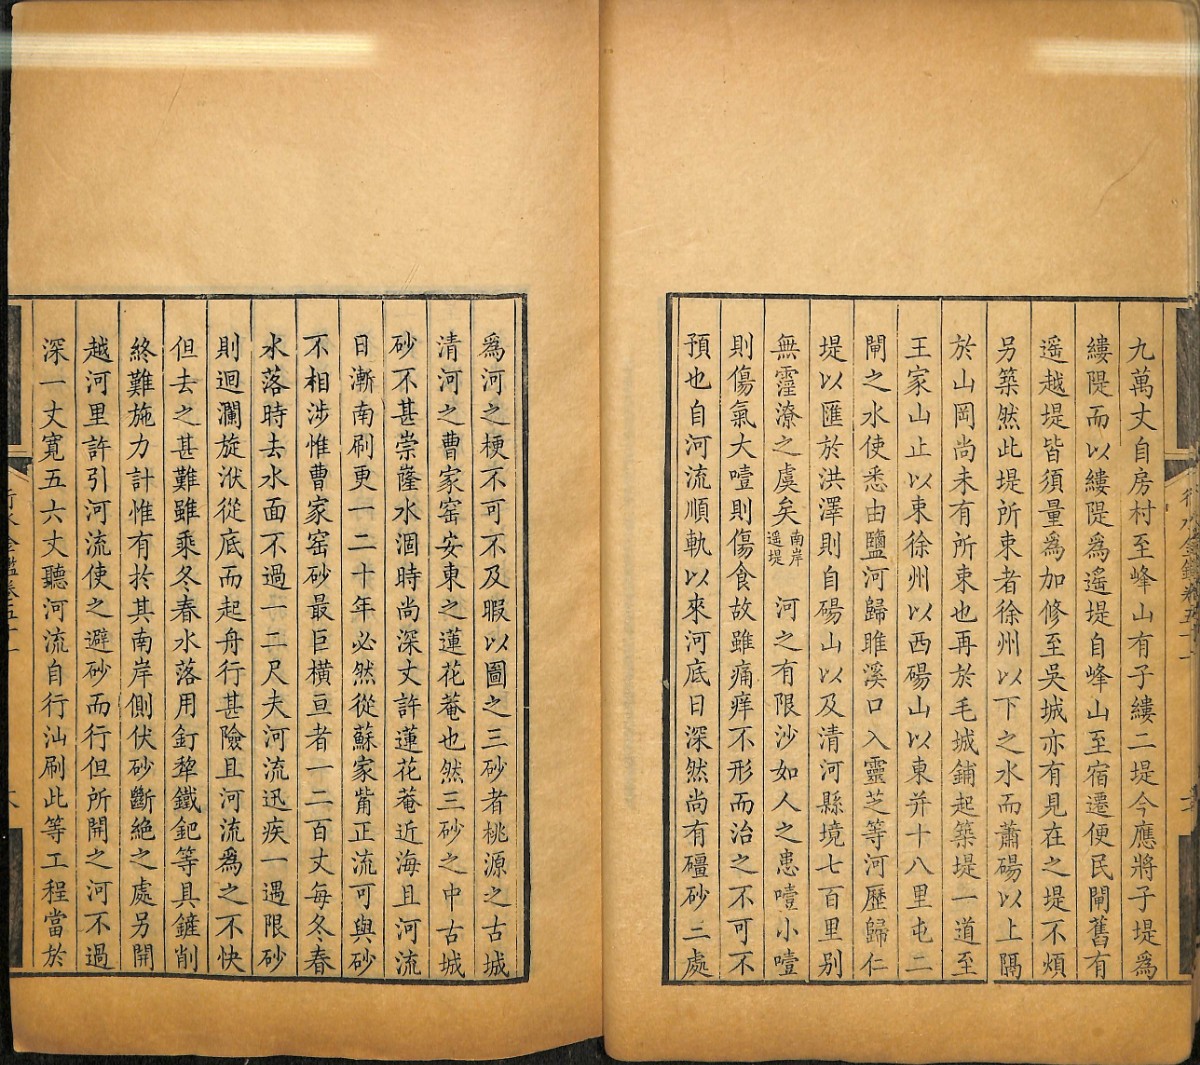 九萬丈自房村至峰山有子縷二堤今應將子堤為
縷隄而以縷隄為遥堤自峰山至宿遷便民閘舊有
遥越堤皆須量為加修至吳城亦有見在之堤不煩
另築然此堤所束者徐州以下之水而蕭碭以上隔
於山岡尚未有所束也再於毛城鋪起築堤一道至
王家山止以東徐州以西碭山以東并十八里屯二
閘之水使悉由鹽河歸睢溪口入靈芝等河歷歸仁
堤以匯於洪澤則自碭山以及清河縣境七百里别
無霪潦之虞矣南岸遥堤　河之有限沙如人之患噎小噎
則傷氣大噎則傷食故雖痛痒不形而治之不可不
預也自河流順軌以來河底日深然尚有礓砂三處
為河之梗不可不及暇以圖之三砂者桃源之古城
清河之曹家窑安東之蓮花菴也然三砂之中古城
砂不甚崇隆水涸時尚深丈許蓮花菴近海且河流
日漸南刷更一二十年必然從蘇家觜正流可與砂
不相涉惟曹家窑砂最巨横亘者一二百丈每冬春
水落時去水面不過一二尺夫河流迅疾一遇限砂
則迴瀾旋洑從底而起舟行甚險且河流為之不快
但去之甚難雖乘冬春水落用釘犂鐵鈀等具鏟削
終難施力計惟有於其南岸側伏砂斷絶之處另開
越河里許引河流使之避砂而行但所開之河不過
深一丈寛五六丈聽河流自行汕刷此等工程當於